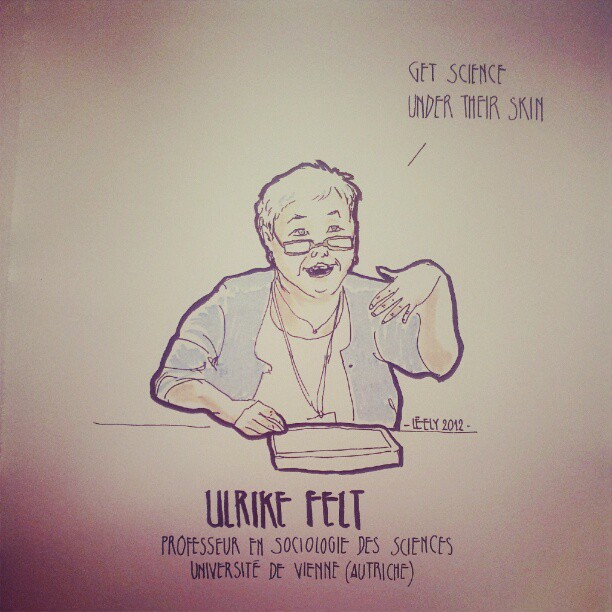 GET SCIENCE
UNDER THEIR SKIN
- LËELY 2012 -
ULRIKE FELT
PROFESSEUR EN SOCIOLOGIE DES SCIENCES
UNIVERSITÉ DE VIENNE (AUTRICHE)